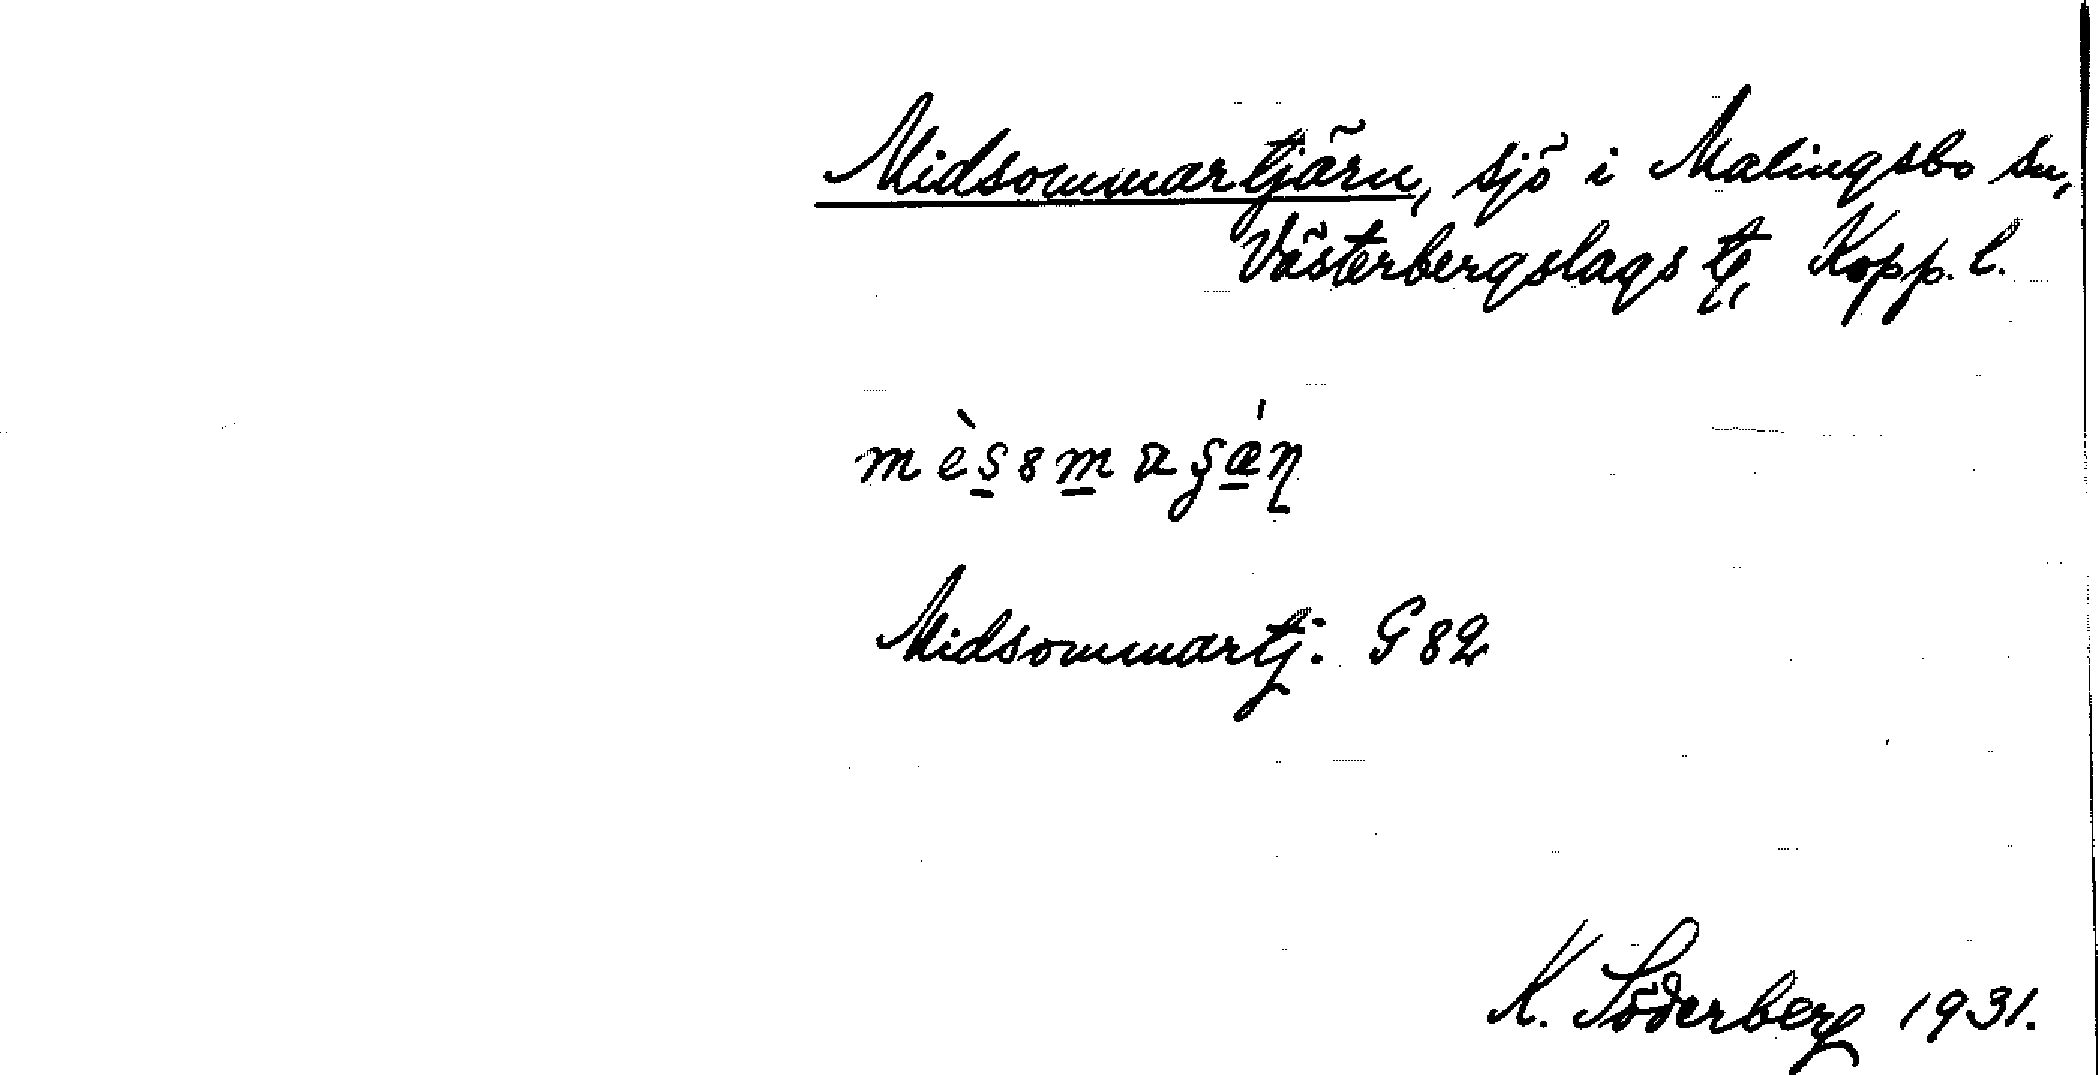 Midsommartjärn, sjö i Malingsbo sn,
Västerbergslags tg, Kopp. l.
Midsommartj. G 82
K. Söderberg 1931.